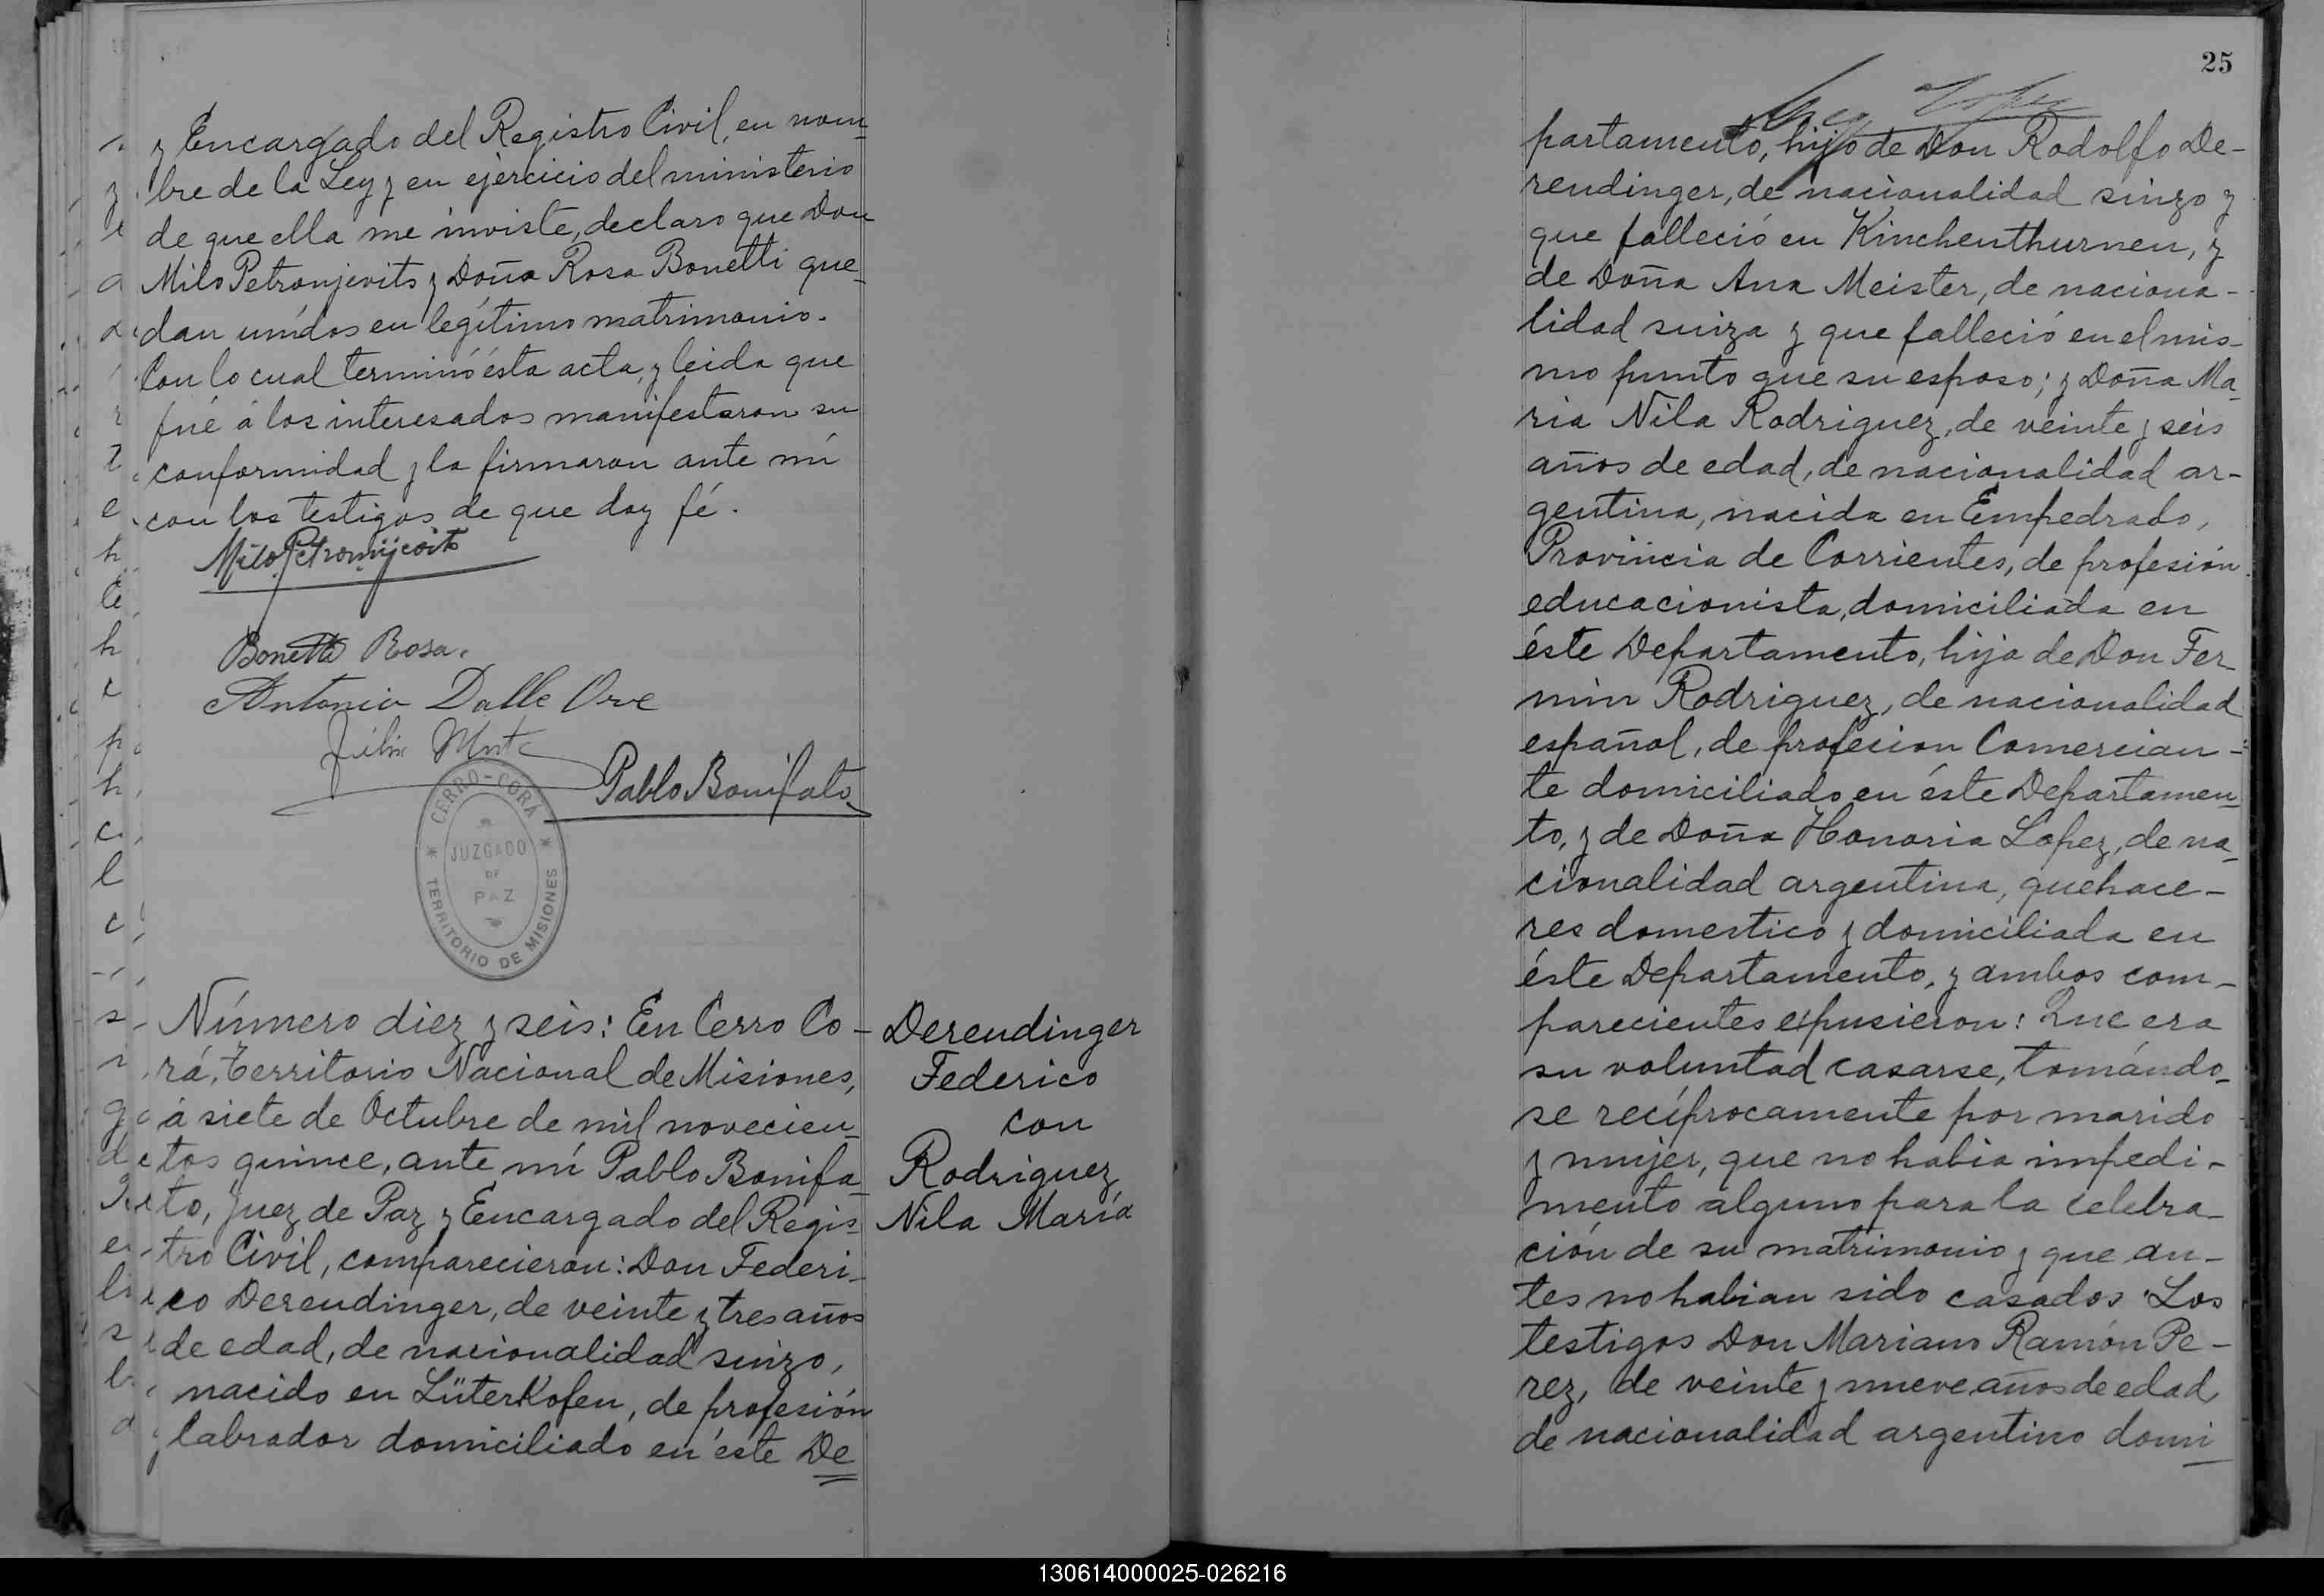 y Encargado del Registro Civil, en nom-
bre de la Ley y en ejercicio del ministerio
de que ella me inviste, declaro que Don
Milo Petronjevits y Doña Rosa Bonetti que-
dan unidos en legítimo matrimonio.
Con lo cual terminó ésta acta, y leida que
fué á los interesados manifestaron su
conformidad y la firmaron ante mí
con los testigos de que doy fé.
Milo Petronijevits
Bonetti Rosa.
Antonio Dalle Ore
Pablo Bonifato
CERRO-CORÁ
JUZGADO
DE
PAZ
TERRITORIO DE MISIONES
Número diez y seis: En Cerro Co-
rá, Territorio Nacional de Misiones,
á siete de Octubre de mil novecien-
tos quince, ante mí Pablo Bonifa-
to, Juez de Paz y Encargado del Regis-
tro Civil, comparecieron: Don Federi-
co Derendinger, de veinte y tres años
de edad, de nacionalidad suizo,
nacido en Lüterkofen, de profesión
labrador domiciliado en éste De
Derendinger
Federico
con
Rodriguez
Nila María
25
partamento, hijo de Don Rodolfo De-
rendinger, de nacionalidad suizo y
que falleció en Kinchenthurnen, y
de Doña Ana Meister, de naciona-
lidad suiza y que falleció en el mis-
mo punto que su esposo; y Doña Ma-
ria Nila Rodriguez, de veinte y seis
años de edad, de nacionalidad ar-
gentina, nacida en Empedrado,
Provincia de Corrientes, de profesión
educacionista, domiciliada en
éste Departamento, hija de Don Fer-
min Rodriguez, de nacionalidad
español, de profesion Comercian-
te domiciliado en éste Departamen-
to, y de Doña Honoria Lopez, de na-
cionalidad argentina, quehace-
res domestico y domiciliada en
éste Departamento, y ambos com-
parecientes expusieron: Que era
su voluntad casarse, tomándo-
se recíprocamente por marido
y mujer, que no habia impedi-
mento alguno para la celebra-
ción de su matrimonio y que an-
tes no habian sido casados. Los
testigos Don Mariano Ramón Pe-
rez, de veinte y nueve años de edad,
de nacionalidad argentino domi
130614000025-026216